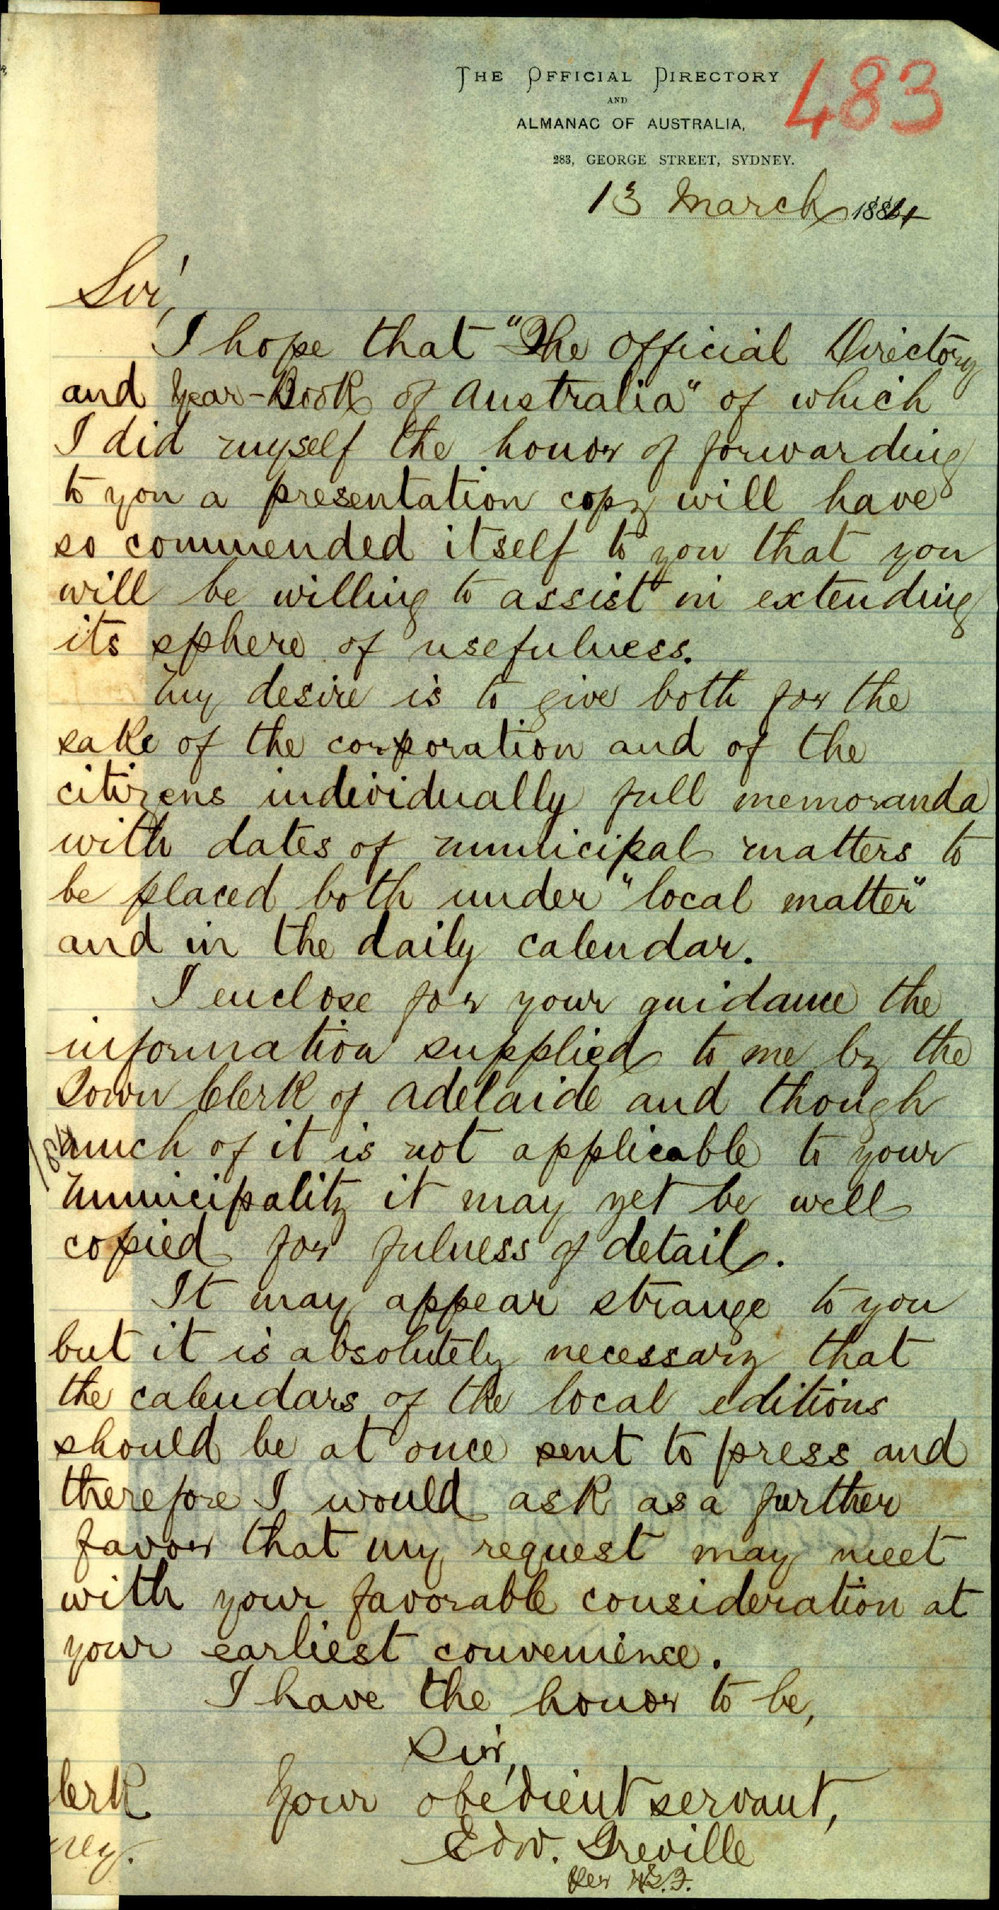 THE OFFICIAL DIRECTORY
AND
ALMANAC OF AUSTRALIA,
283, GEORGE STREET, SYDNEY.
483
13 March 1884
Sir,
I hope that "The Official Directory
and Year-Book of Australia" of which
I did myself the honor of forwarding
to you a presentation copy will have
so commended itself to you that you
will be willing to assist in extending
its sphere of usefulness.
My desire is to give both for the
sake of the corporation and of the
citizens individually full memoranda
with dates of municipal matters to
be placed both under "local matter"
and in the daily calendar.
I enclose for your guidance the
information supplied to me by the
Town Clerk of Adelaide and though
much of it is not applicable to your
Municipality it may yet be well
copied for fulness of detail.
It may appear strange to you
but it is absolutely necessary that
the calendars of the local editions
should be at once sent to press and
therefore I would ask as a further
favor that my request may meet
with your favorable consideration at
your earliest convenience.
I have the honor to be,
Sir,
Your obedient servant,
Edw. Greville
lerk
ney.